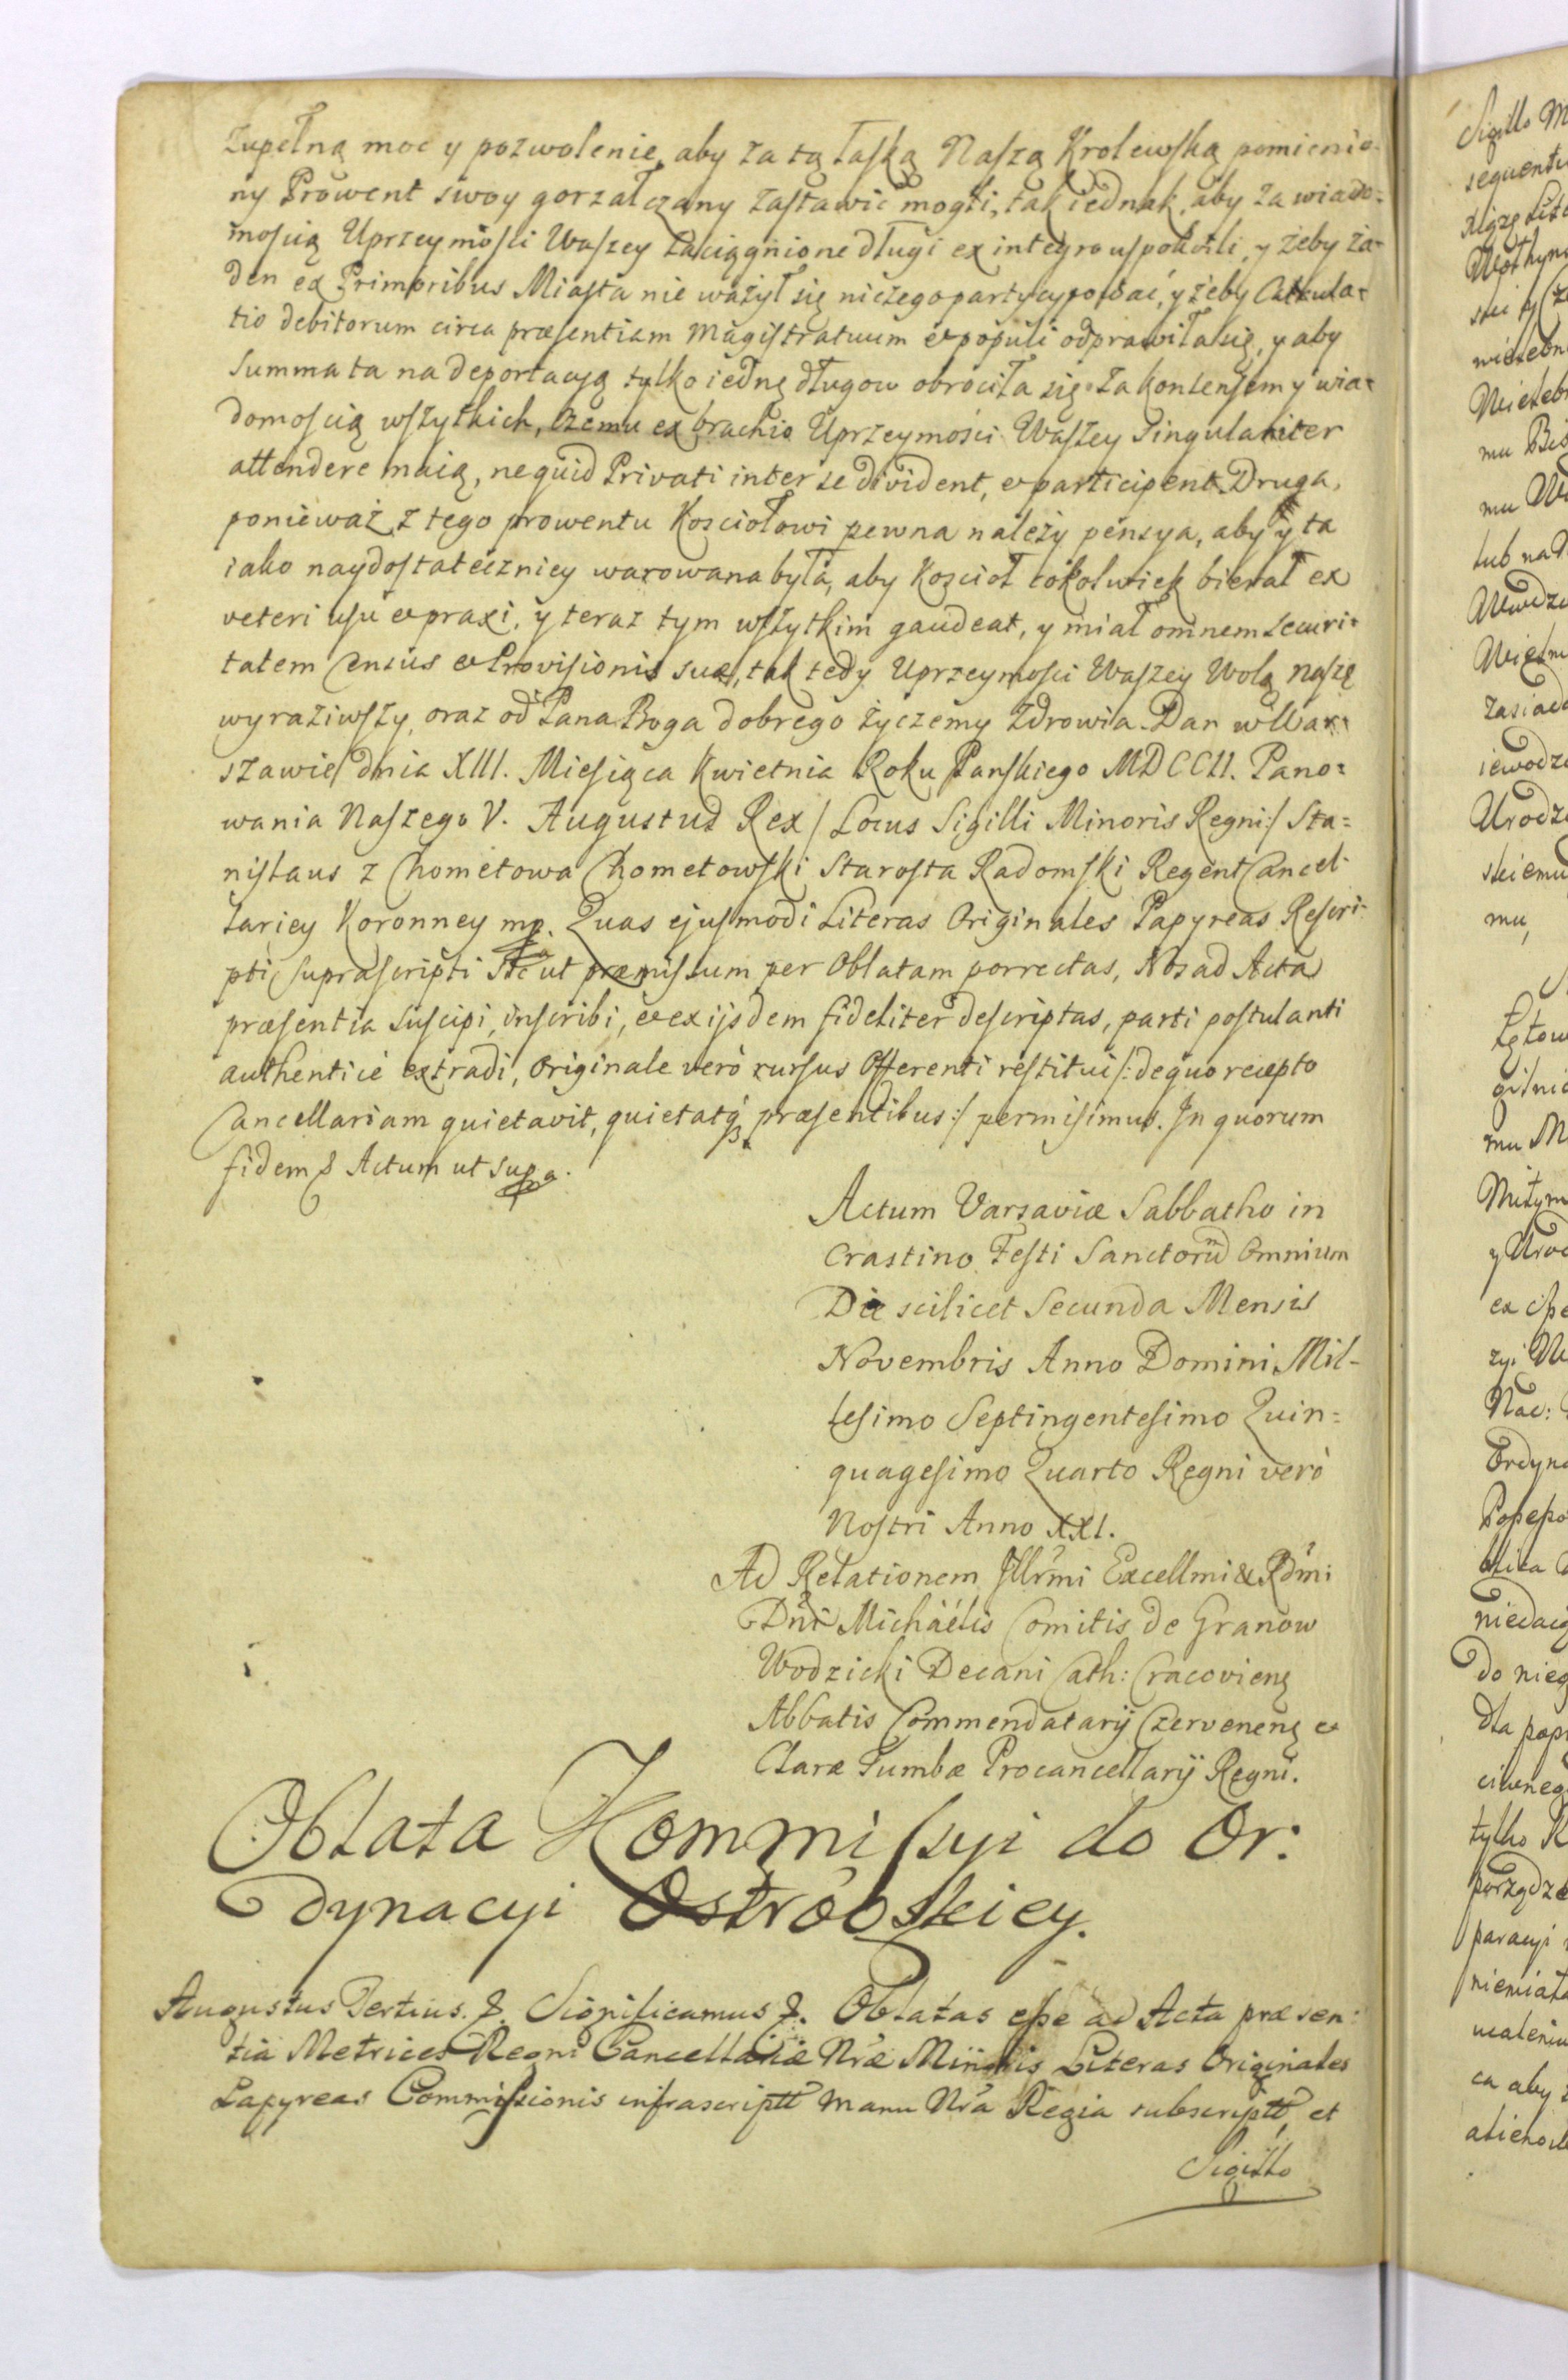 Zupełną moc y pozwolenie, aby za tą łaską Naszą Krolewską pomienio-
ny Prowent swoy gorzałczany zastawić mogli, tak iednak, aby za wiado=
mością Uprzeymości Waszey zaciągnione długi ex integro uspokoili, y żeby ża=
den ex Primoribus Miasta nie ważył się niczego partycypować, y żeby Calcula=
tio debitorum circa præsentiam Magistratuum et populi odprawiła się, y aby
Summa ta na deportacyą tylko iednę długow obrociła się za konsensem y wia=
domością wszytkich, czemu ex brachio Uprzeymości Waszey Singulariter
attendere maią, ne quid Privati inter se divident, et participent. Druga,
ponieważ z tego prowentu Kosciołowi pewna należy pensya, aby y ta
iako naydostateczniey warowana była, aby Koscioł cokolwiek bierał ex
veteri usu et praxi, y teraz tym wszytkim gaudeat, y miał omnem securi=
tatem Census et Provisionis suæ, tak tedy Uprzeymości Waszey Wolą naszę
wyraziwszy, oraz od Pana Boga dobrego życzemy zdrowia. Dan w War=
szawie dnia XIII. Miesiąca Kwietnia Roku Panskiego MDCCII. Pano=
wania Naszego V. Augustus Rex /Locus Sigilli Minoris Regni:/ Sta=
nislaus z Chometowa Chometowski Starosta Radomski Regent Cancel-
lariey Koronney mp. Quas ejusmodi Literas Originales Papyreas Rescri=
pti suprascripti Sic ut præmissum per Oblatam porrectas, Nos ad Acta
præsentia suscipi, inscribi, et ex ijsdem fideliter descriptas, parti postulanti
authenticè extradi, Originale verò rursus Offerenti restitui /:de quo recepto
Cancellariam quietavit, quietatq præsentibus:/ permisimus. In quorum
fidem & Actum ut supra.
Actum Varsaviæ Sabbatho in
Crastino Festi Sanctorũ Omnium
Die scilicet Secunda Mensis
Novembris Anno Domini Mil-
lesimo Septingentesimo Quin=
quagesimo Quarto Regni verò
Nostri Anno XXI.
Ad Relationem Illrmi Excellmi & Rdmi
Dni Michäélis Comitis de Granow
Wodzicki Decani Cath: Cracovieng
Abbatis Commendatarij Czerveneng et
Claræ Tumbæ Procancellarij Regni.
Oblata Kommissyi do Or:
dynacyi Ostrogskiey.
Augustus Tertius. &. Significamus &. Oblatas esse ad Acta præsen:
tia Metrices Regni Cancellariæ Nræ Minoris Literas Originales
Papyreas Commissionis infrascriptt manu Nrâ Regia subscriptt, et
Sigillo